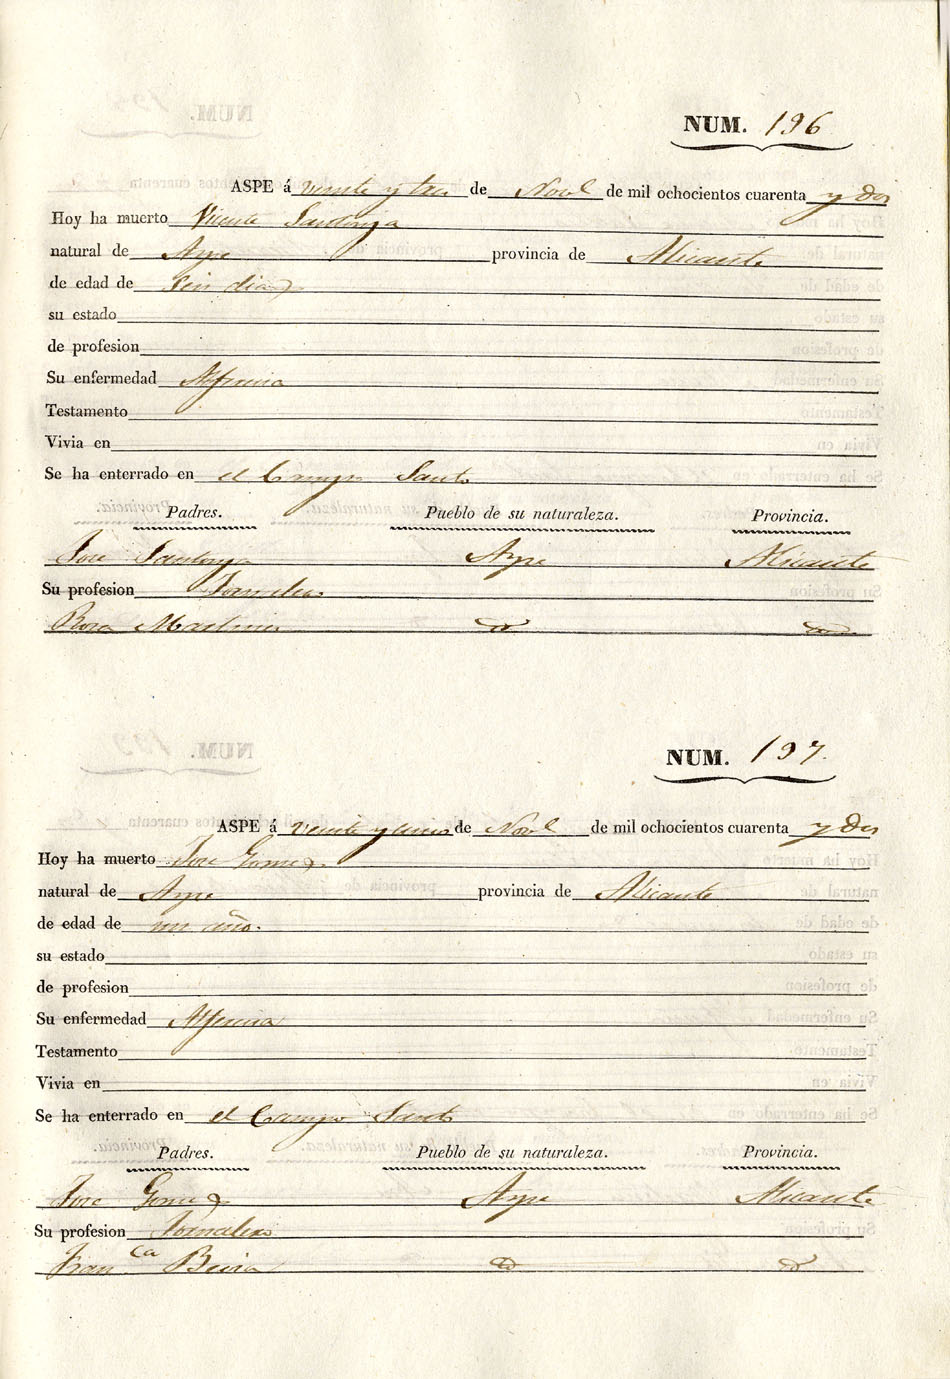 NUM. 196
ASPE á veinte y tres de Novl de mil ochocientos cuarenta y dos
Hoy ha muerto Vicente Santonja
natural de Aspe provincia de Alicante
de edad de seis dias
su estado
de profesion
Su enfermedad Alferecia
Testamento
Vivia en
Se ha enterrado en el Campo Santo
Padres. Pueblo de su naturaleza. Provincia.
Jose Santonja Aspe Alicante
Su profesion Jornalero
Rosa Martinez
NUM. 197
ASPE á veinte y de Novl de mil ochocientos cuarenta y dos
Hoy ha muerto Jose Gomez
natural de Aspe provincia de Alicante
de edad de un año.
su estado
de profesion
Su enfermedad Alferecia
Testamento
Vivia en
Se ha enterrado en el Campo Santo
Padres. Pueblo de su naturaleza. Provincia.
Jose Gomez Aspe Alicante
Su profesion Jornalero
Franca